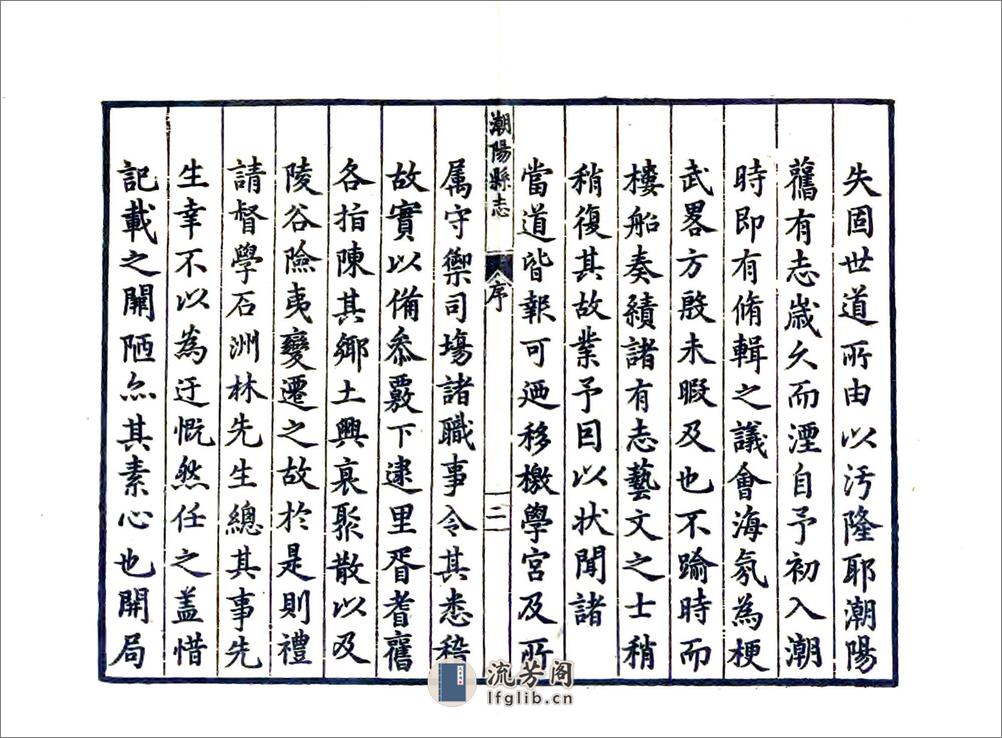 失固世道所由以汚隆耶潮陽
舊有志歲久而湮自予初入潮
時即有脩輯之議會海氛為梗
武畧方殷未暇及也不踰時而
樓船奏績諸有志藝文之士稍
稍復其故業予因以狀聞諸
當道皆報可廼移檄學宮及所
潮陽縣志
序
二
属守禦司塲諸職事令其悉稡
故實以備叅覈下逮里胥耆舊
各指陳其鄉土興衰聚散以及
陵谷險夷變遷之故於是則禮
請督學石洲林先生總其事先
生幸不以為迂慨然任之盖惜
記載之闕陋亦其素心也開局
流芳阁
lfglib.cn